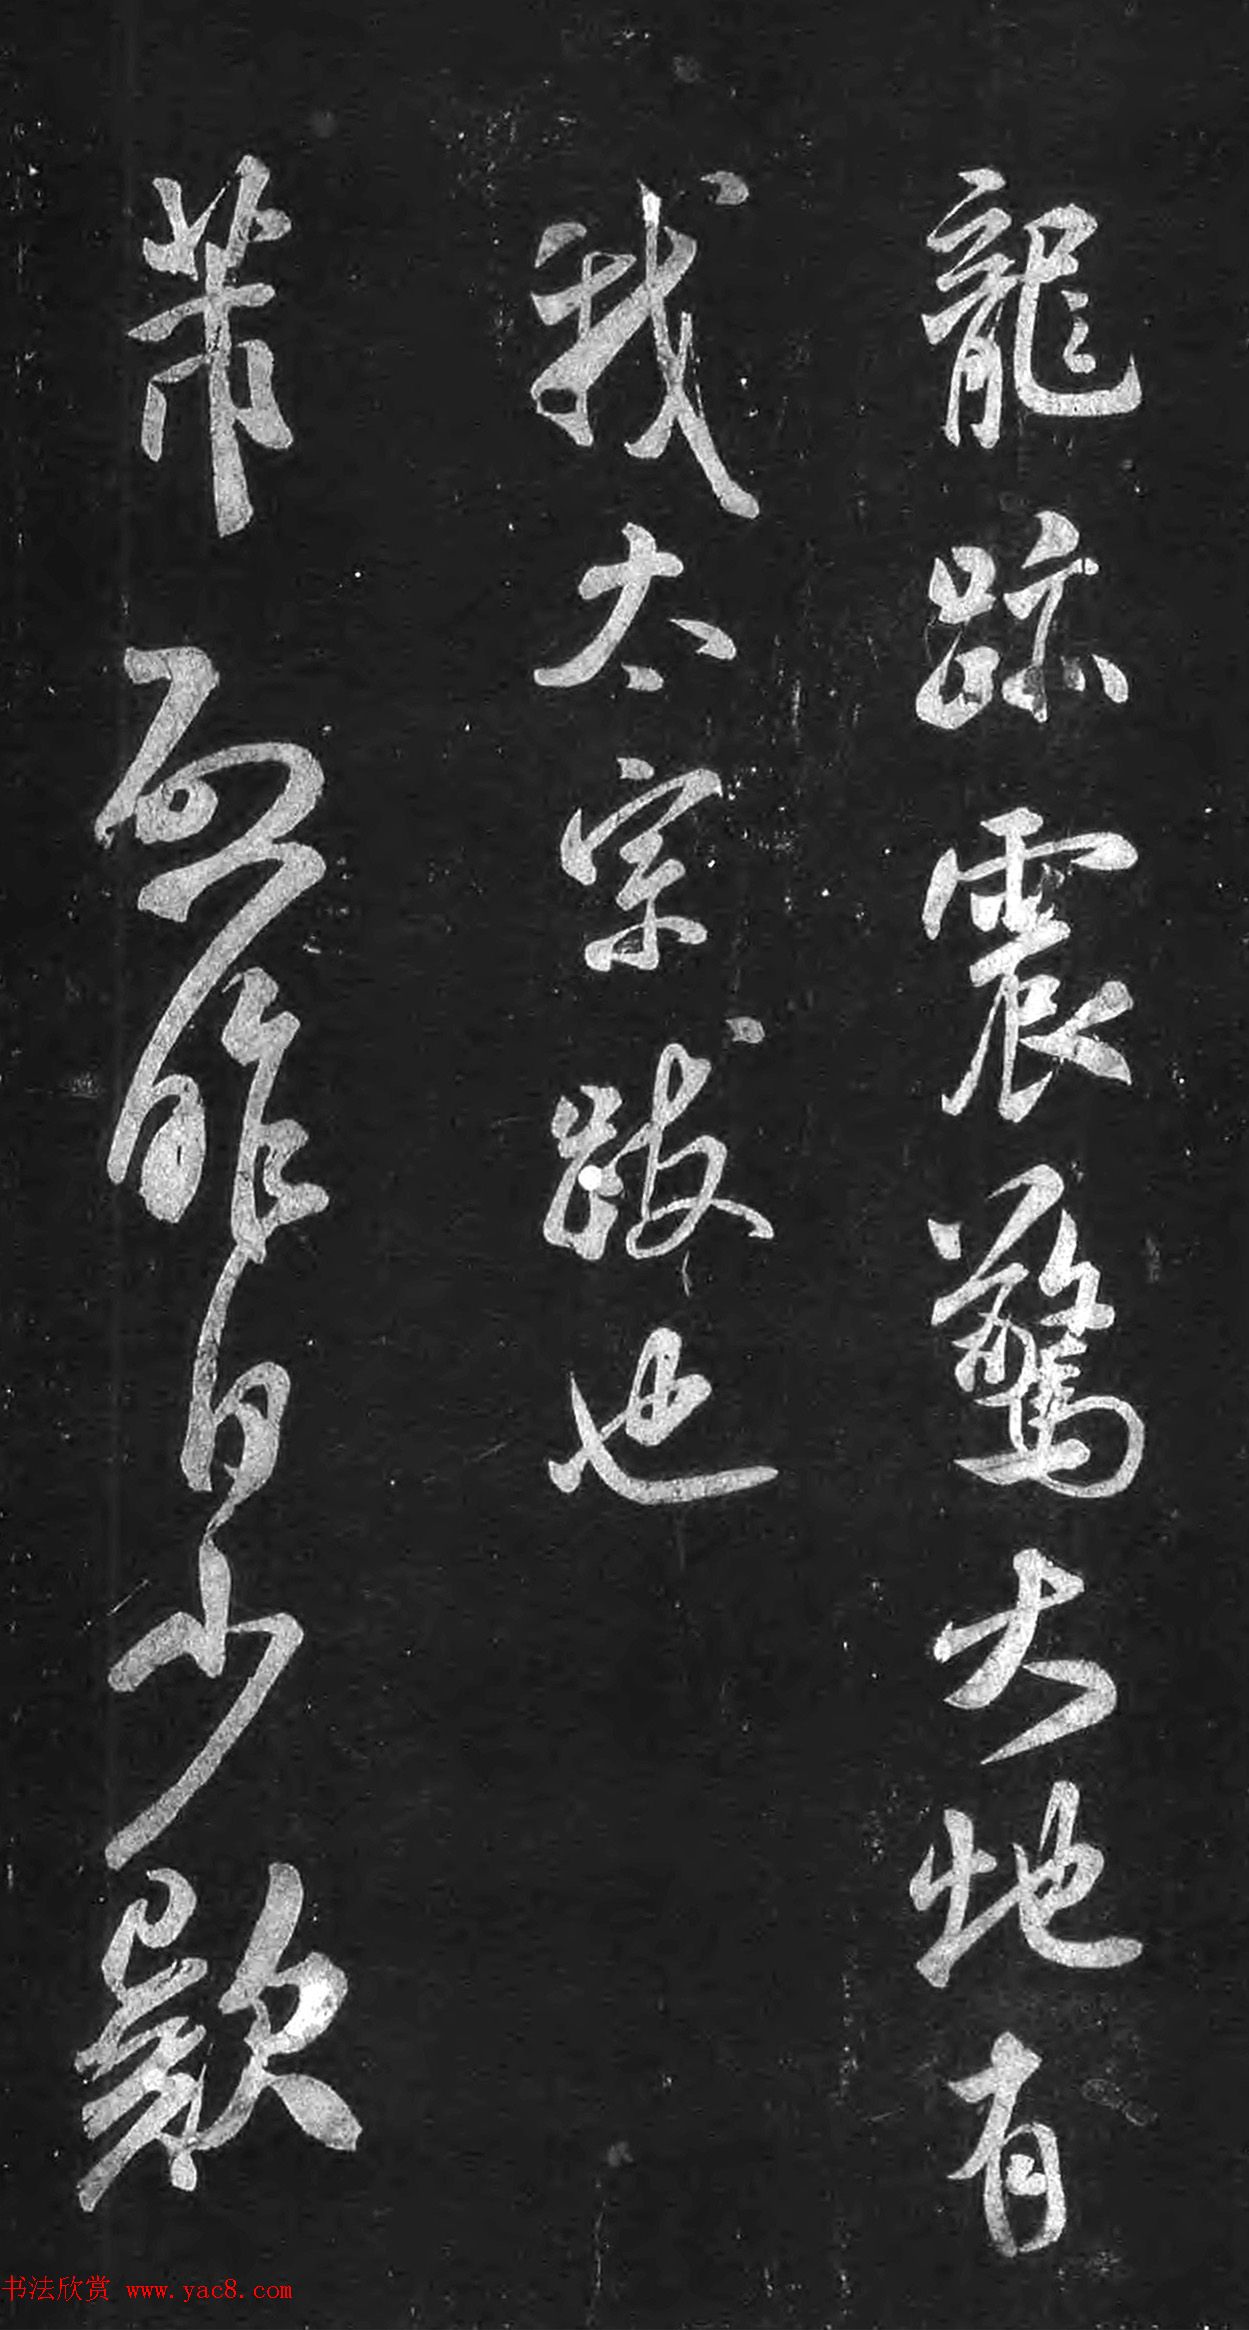 龍跡震驚大地有
我太宗跋也
芾 昨日少款
书法欣赏 www.yac8.com